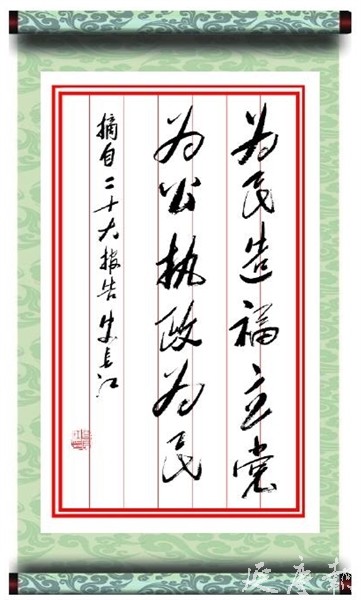 为民造福立党
为公执政为民
摘自二十大报告 史长江